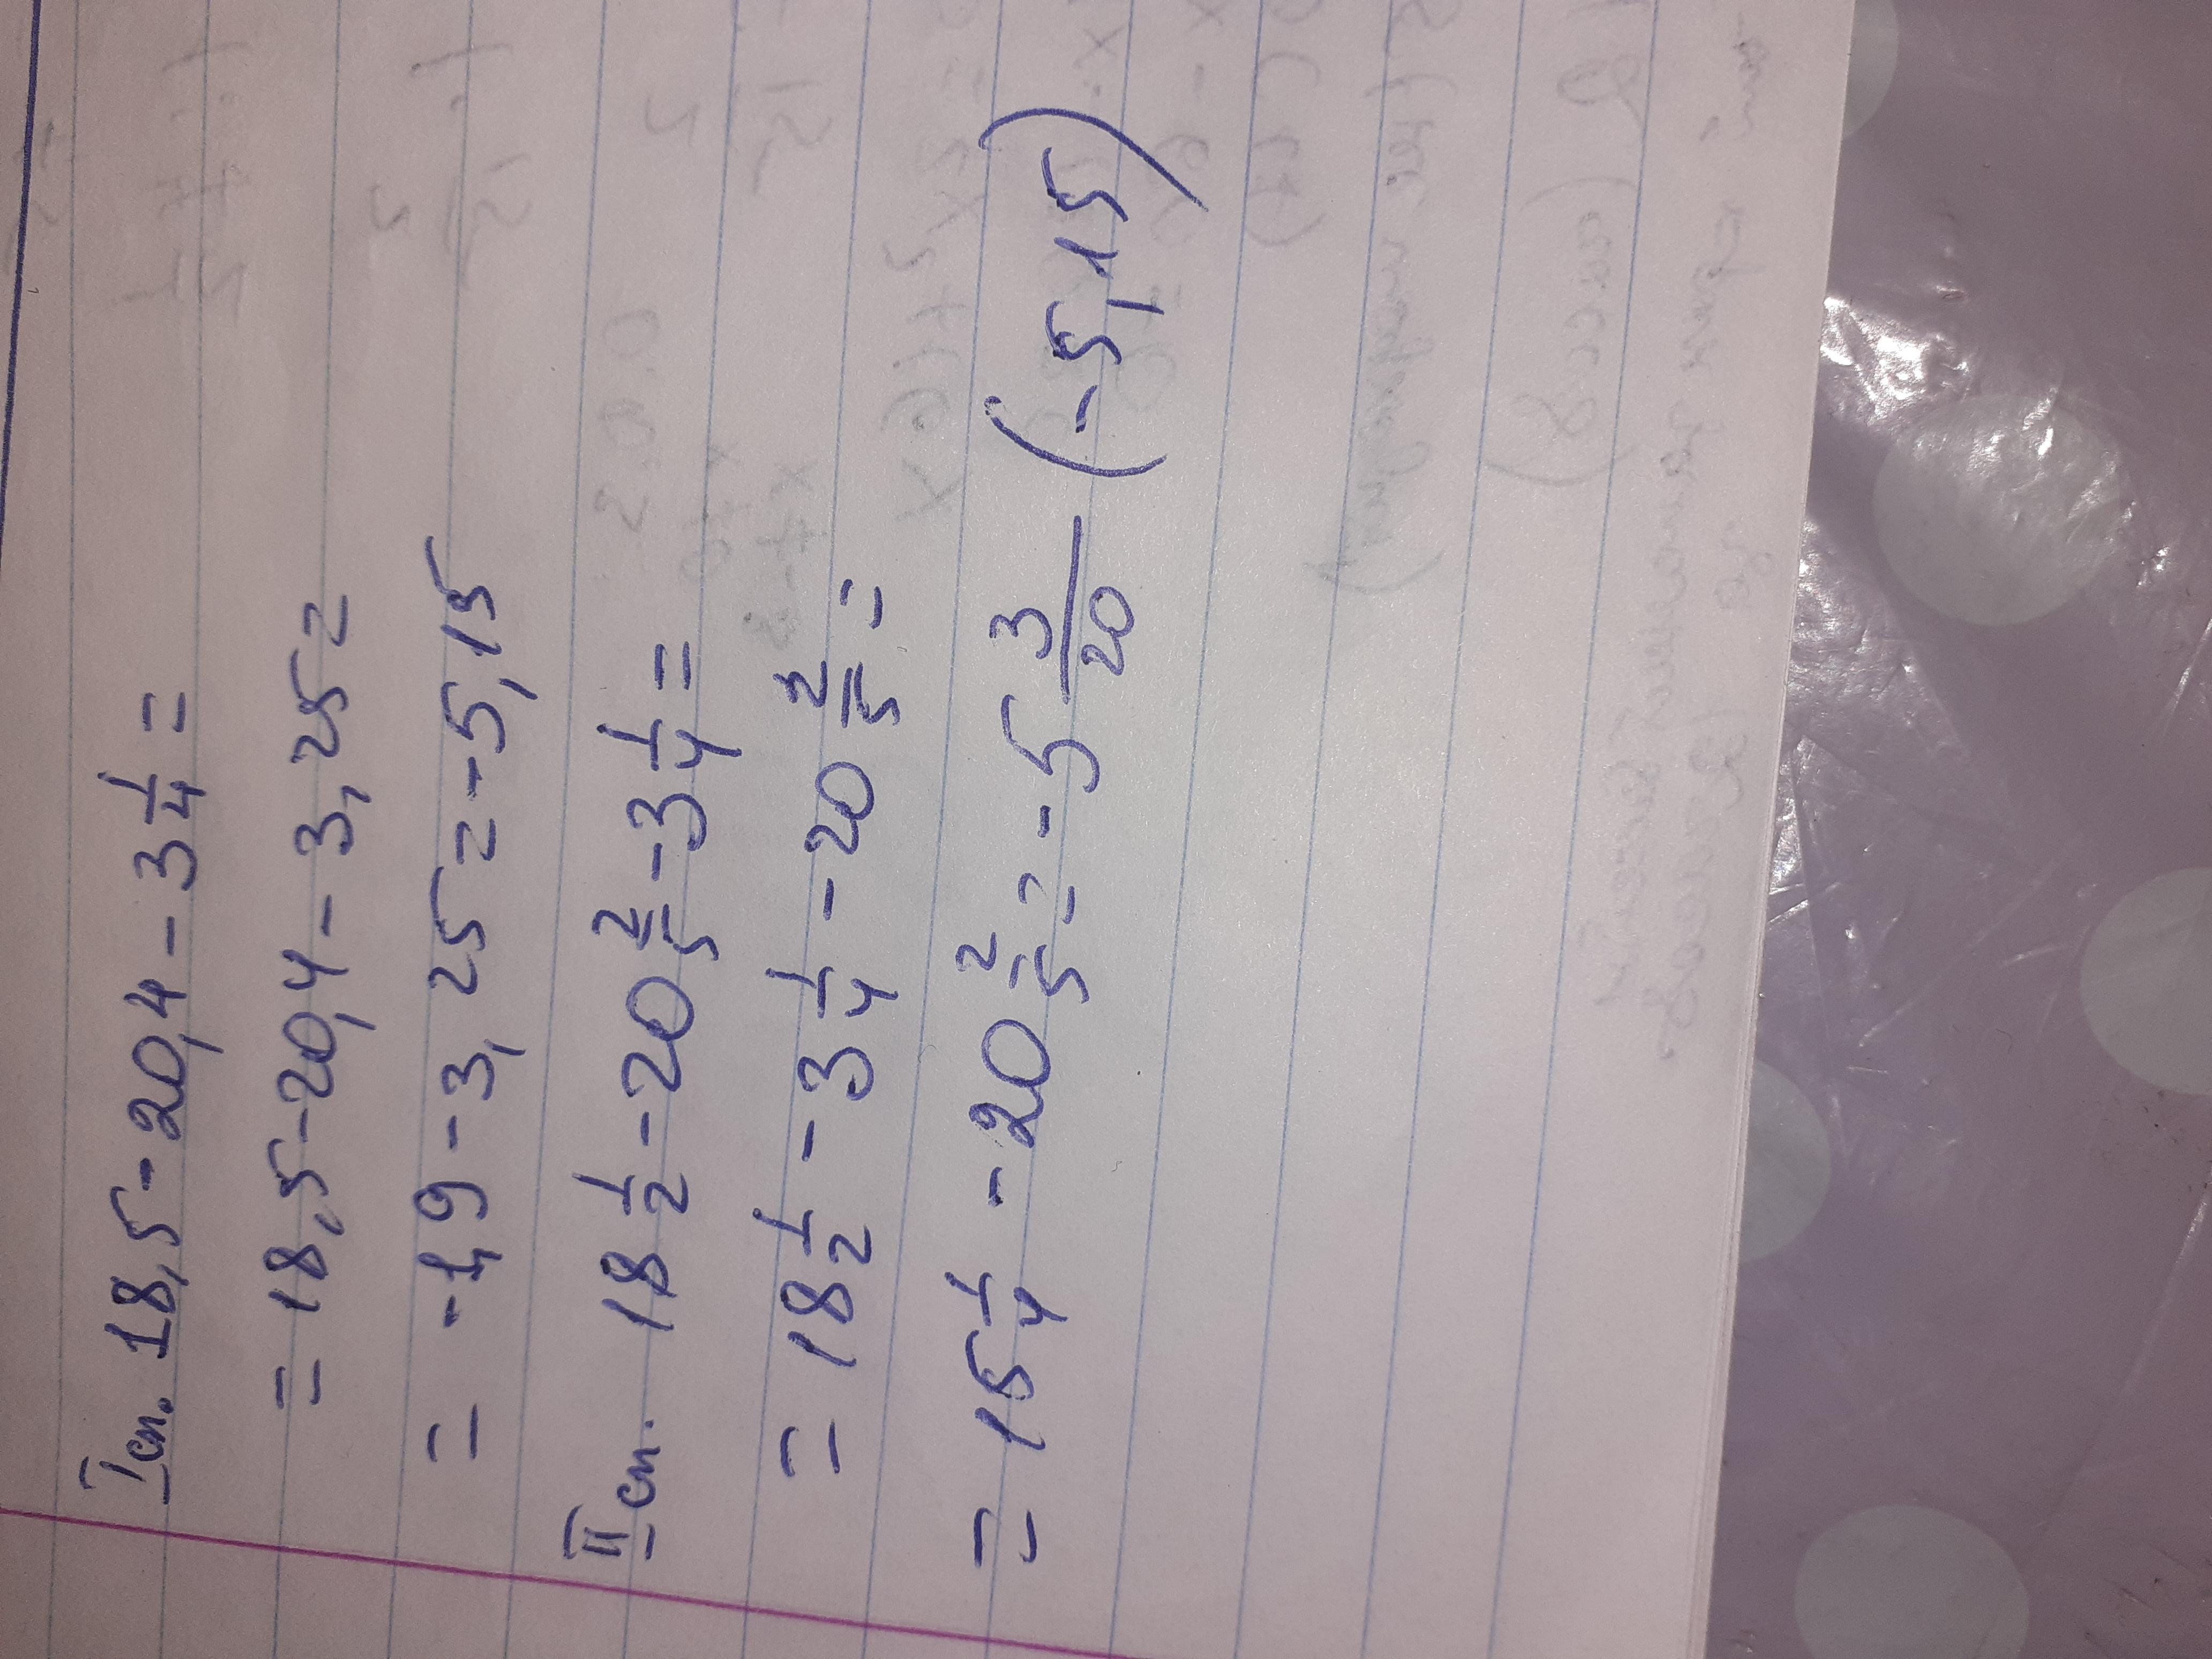 I сп. 18,5-20,4-3 1/4=
=18,5-20,4-3,25=
= -1,9-3,25=-5,15
II сп. 18 1/2-20 2/5-3 1/4=
=18 1/2-3 1/4-20 2/5=
=15 1/4-20 2/5=-5 3/20 (-5,15)